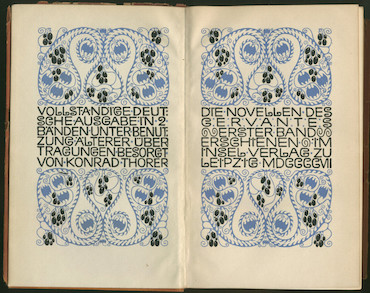 VOLLSTÄNDIGE·DEUT
SCHE·AUSGABE·IN·2
BÄNDEN·UNTER·BENUT
ZUNG·ÄLTERER·ÜBER
TRAGUNGEN·BESORGT
VON·KONRAD·THORER
DIE·NOVELLEN·DES
CERVANTES
ERSTER·BAND
ERSCHIENEN·IM
INSEL·VERLAG·ZU
LEIPZIG·MDCCCCVII